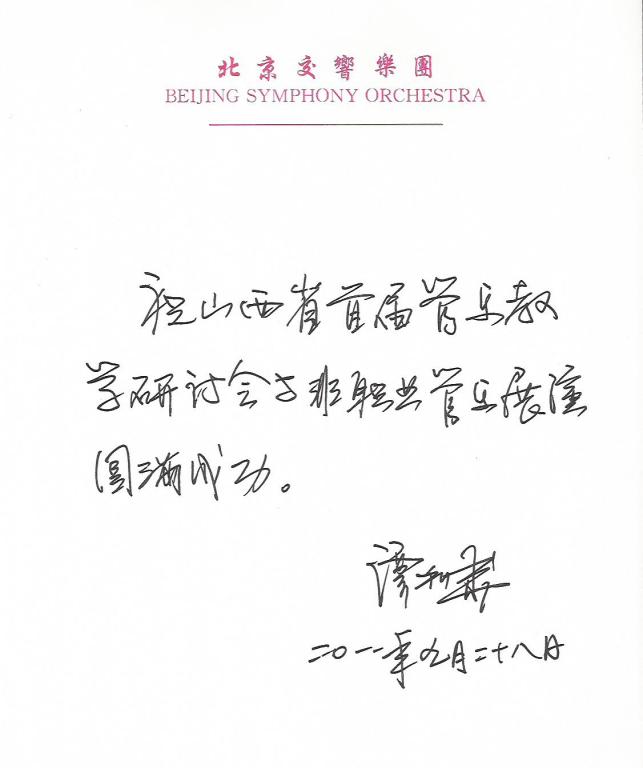 北京交響樂團
BEIJING SYMPHONY ORCHESTRA
祝山西省首届管乐教
学研讨会与非职业管乐展演
圆满成功。
谭利华
二〇一一年九月二十八日